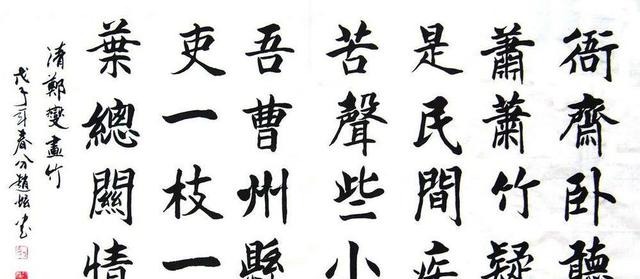 衙齋卧聽
蕭蕭竹疑
是民間疾
苦聲些小
吾曹州縣
吏一枝一
葉總關情
清鄭燮畫竹
戊子年春分趙書